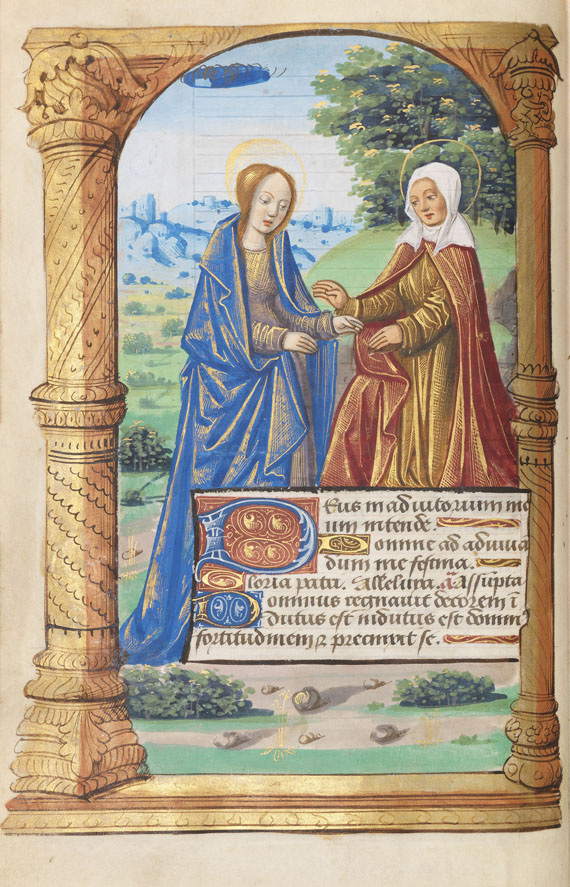 Deus in adiutorium me
um intende.
Domine ad adiuua
dum me festina.
Gloria patri. Alleluia. a. Assupta
Dominus regnauit decorem i
dutus est indutus est domin
fortitudinem ⁊ precinxit se.